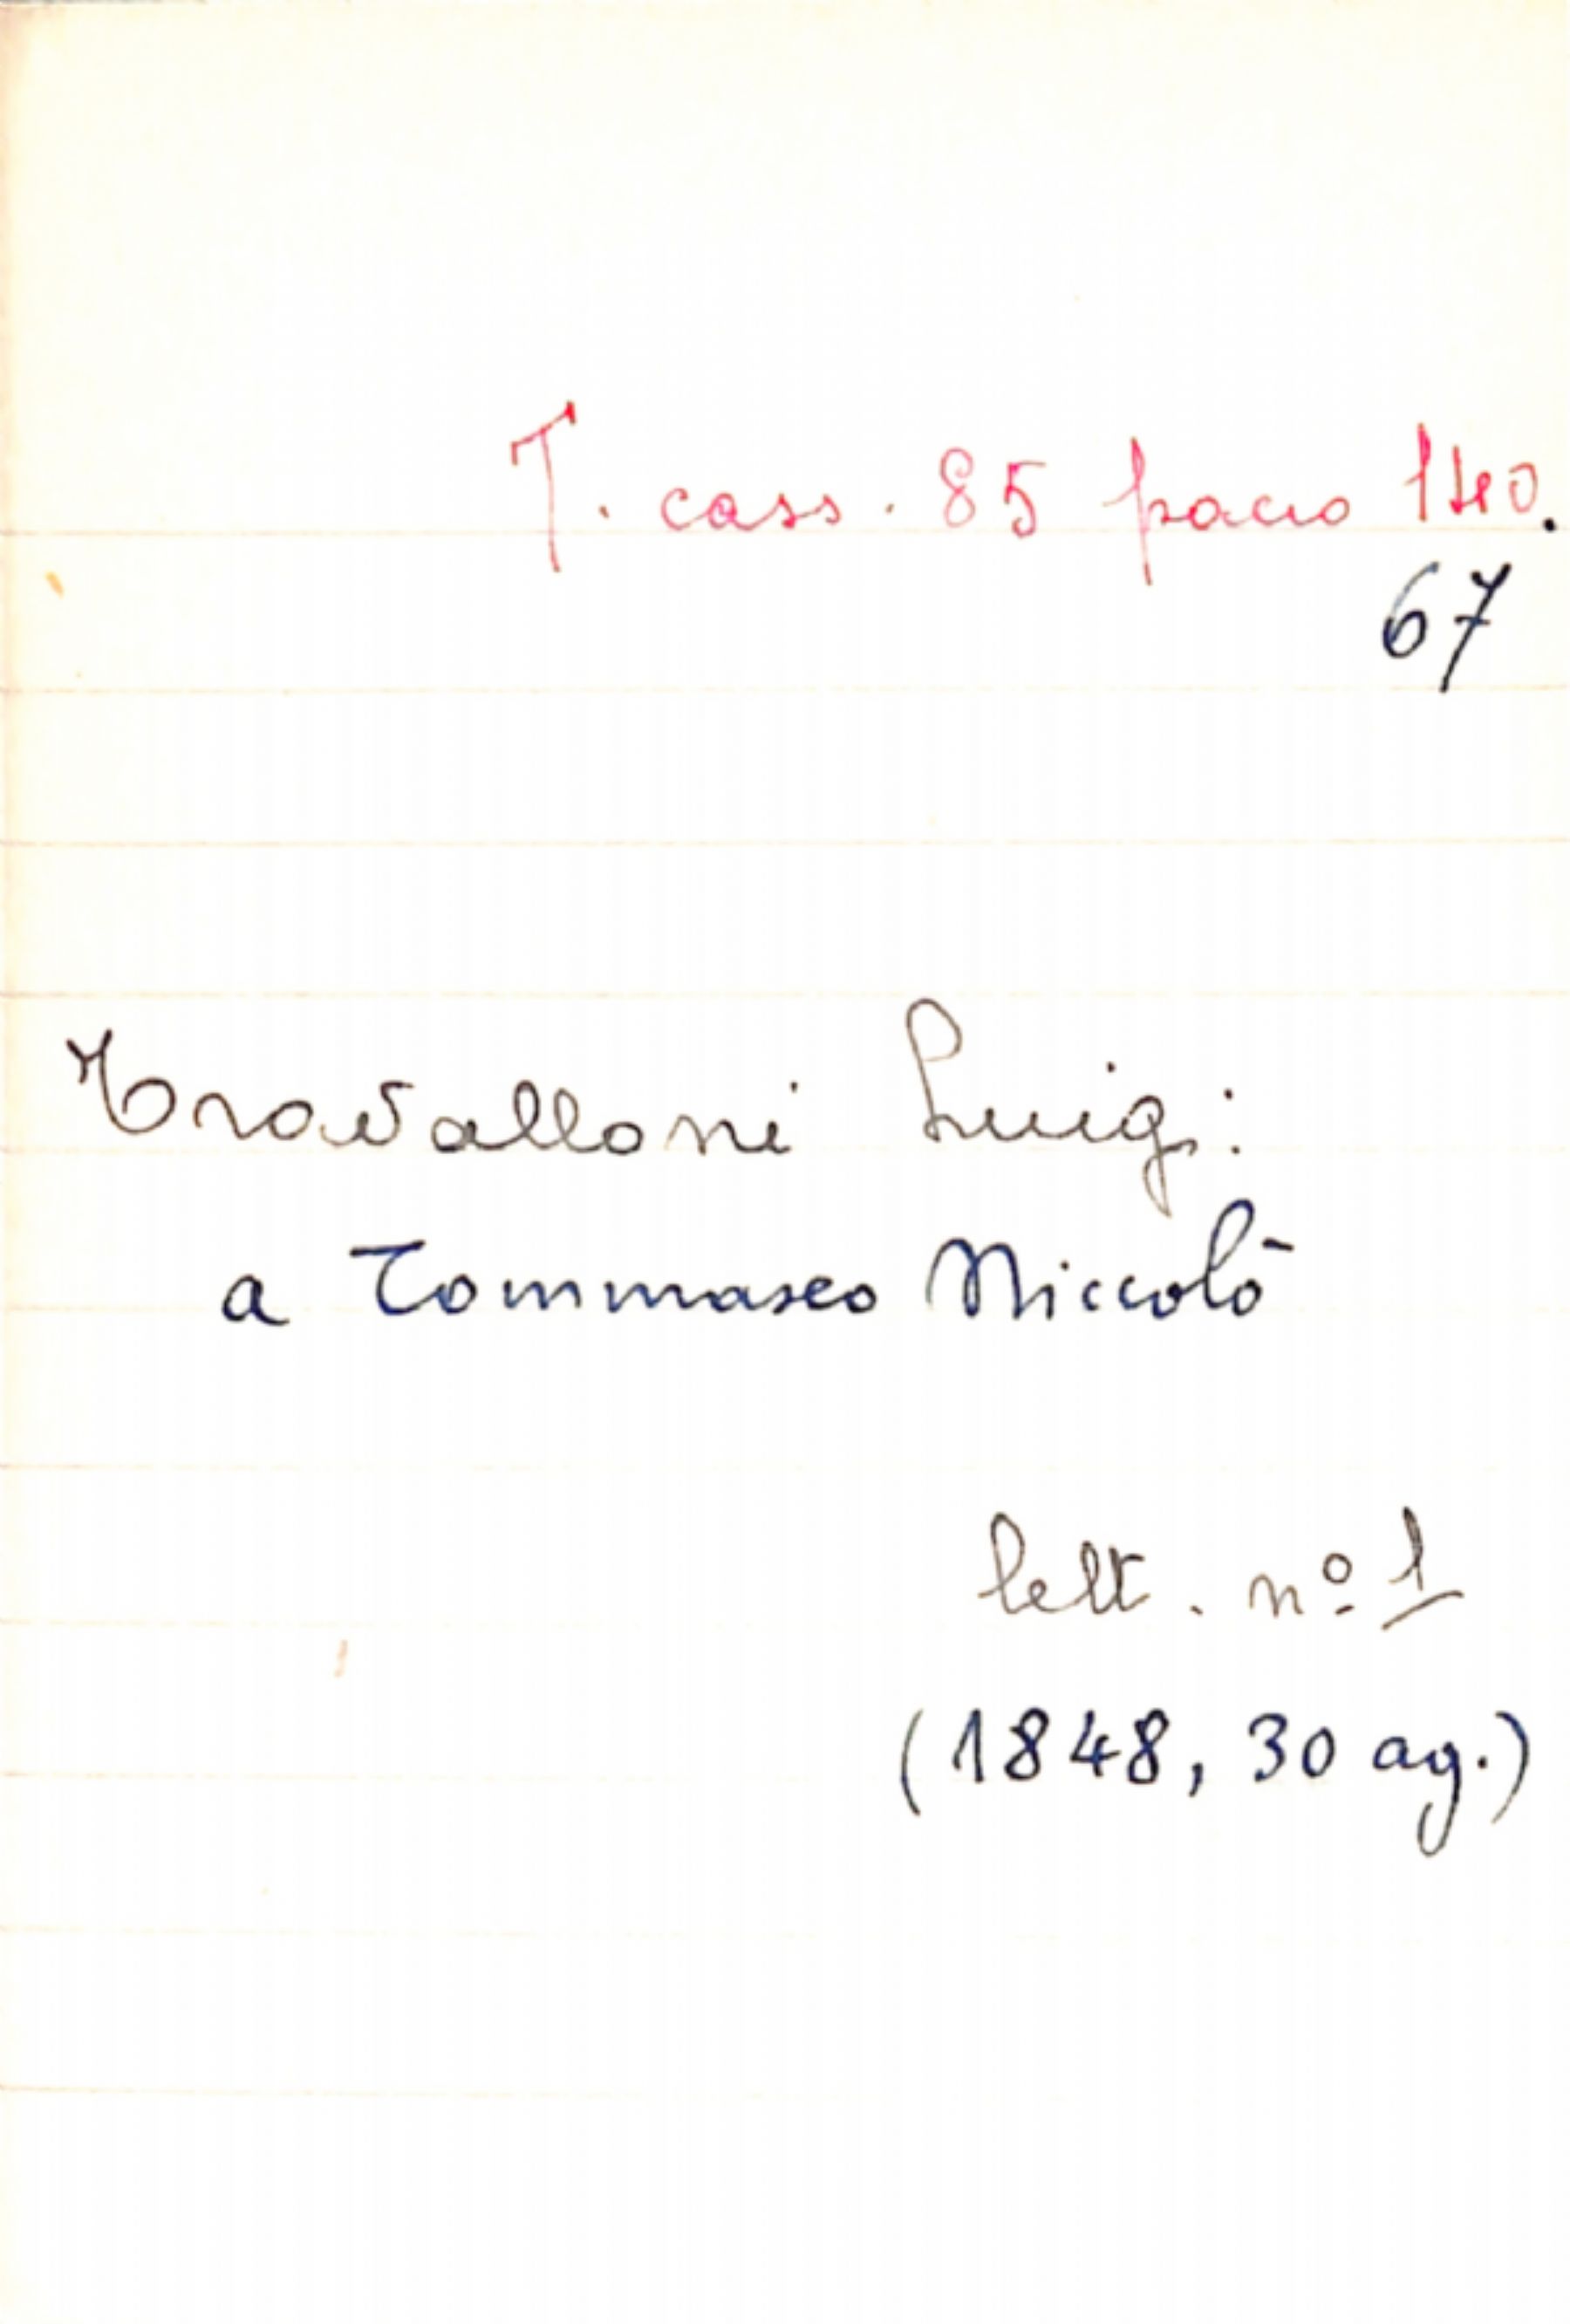 T. cass. 85 pacco 140.
67
Travalloni Luigi:
a Tommaseo Niccolò
lett. nº 1
(1848, 30 ag.)